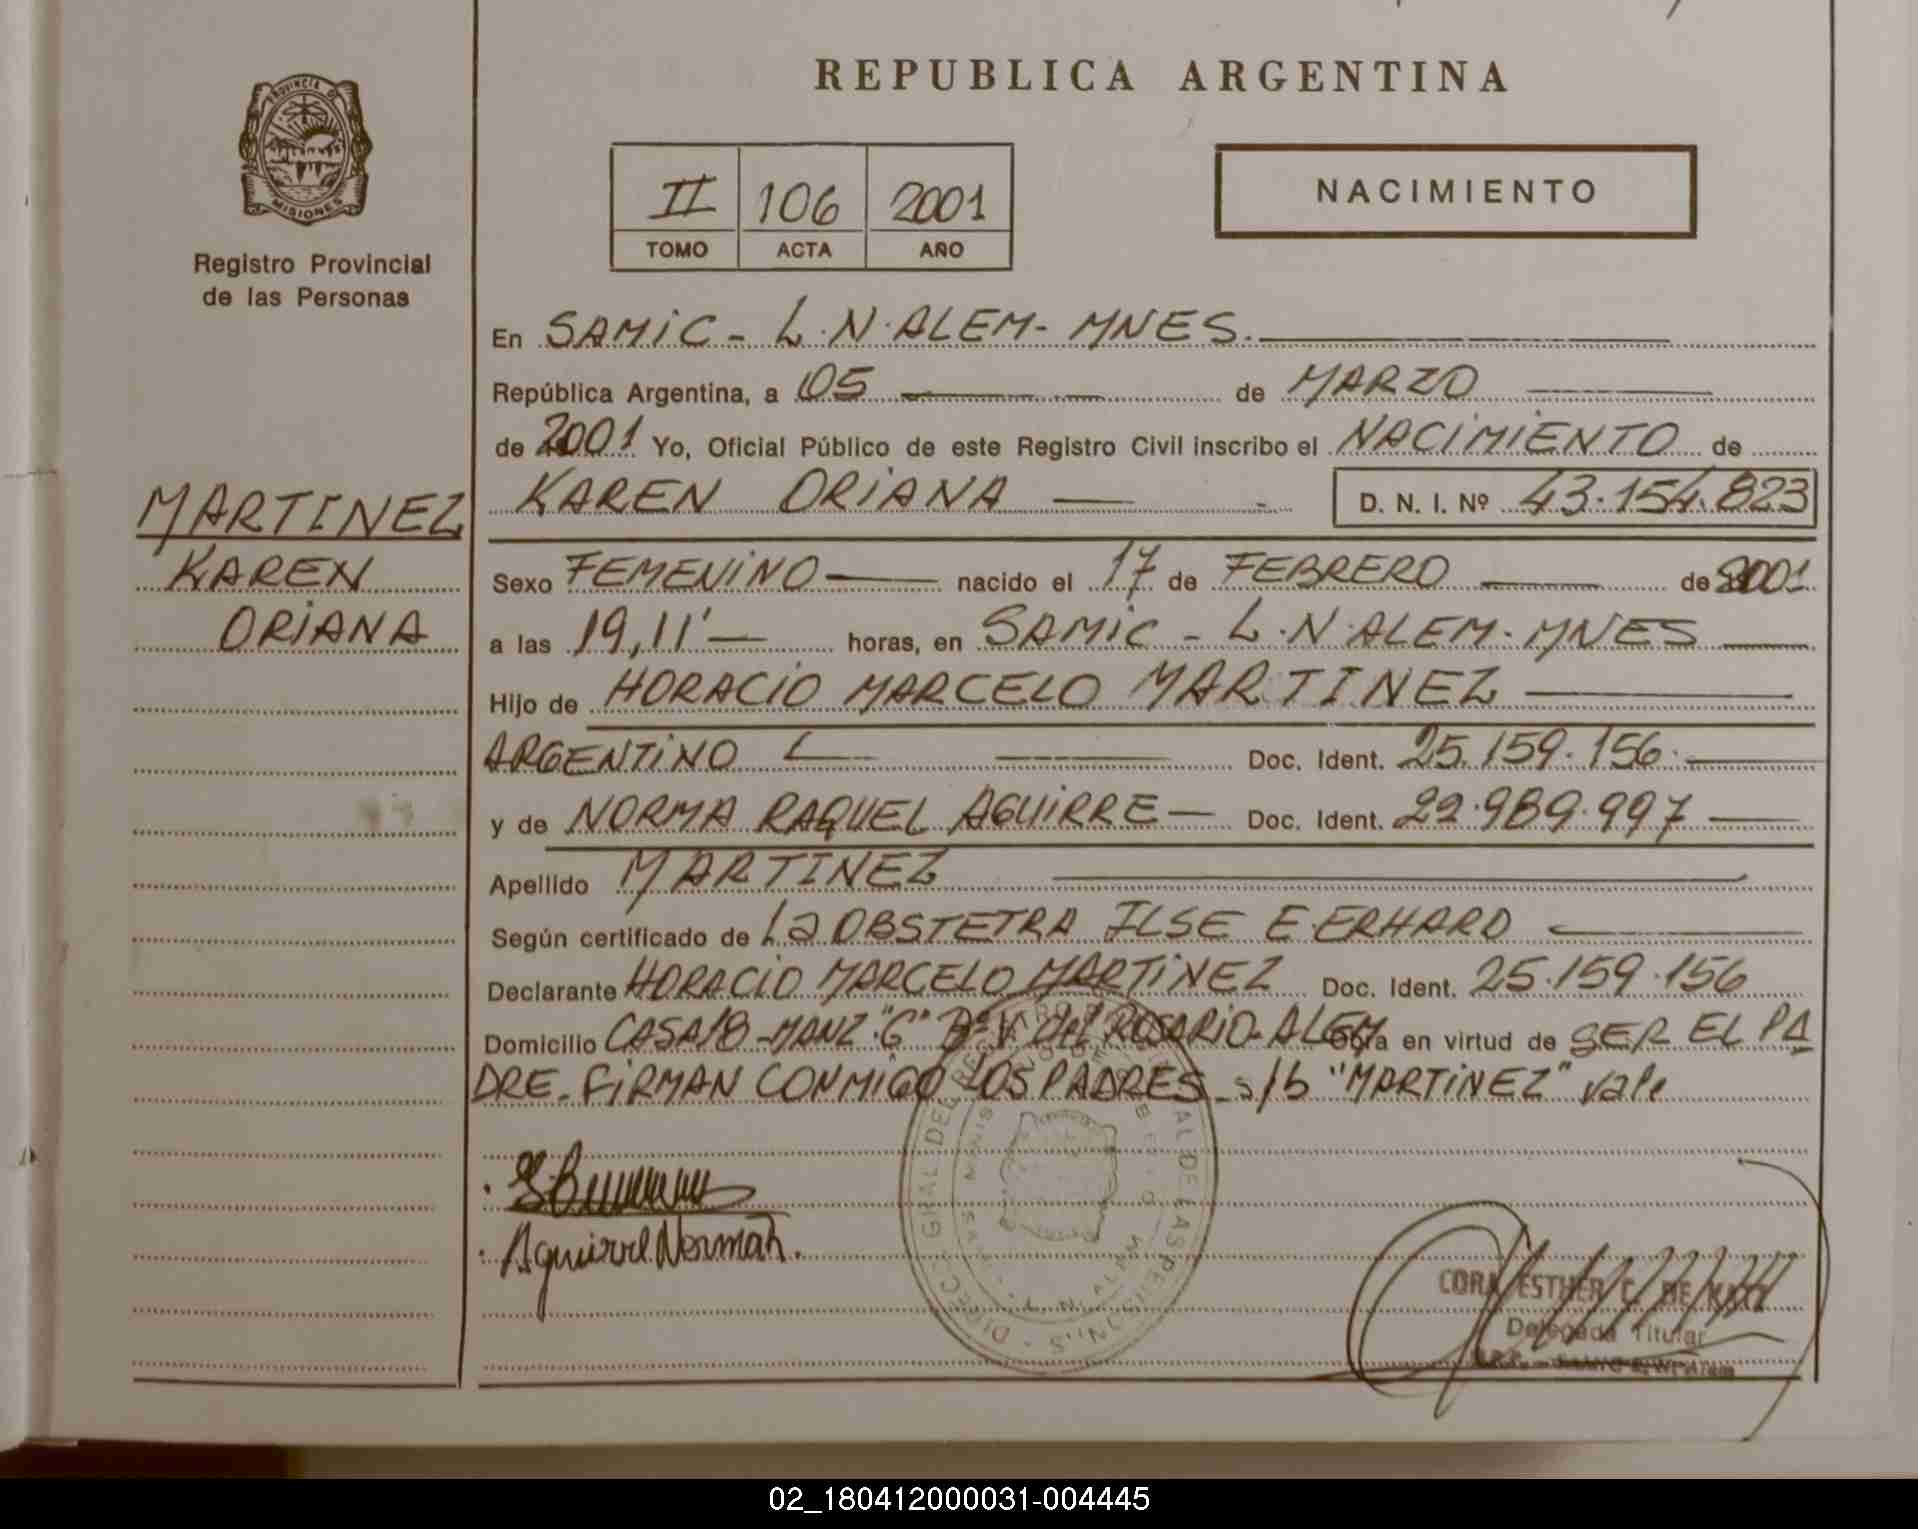 REPUBLICA ARGENTINA
PROVINCIA DE
MISIONES
Registro Provincial
de las Personas
II 106 2001
TOMO ACTA AÑO
NACIMIENTO
En SAMIC - L.N.ALEM- MNES.
República Argentina, a 05 de MARZO
de 2001 Yo, Oficial Público de este Registro Civil inscribo el NACIMIENTO de
KAREN ORIANA D. N. I. Nº 43.154.823
MARTINEZ
KAREN
ORIANA
Sexo FEMENINO nacido el 17 de FEBRERO de 2001
a las 19,11' horas, en SAMIC - L.N.ALEM. MNES
Hijo de HORACIO MARCELO MARTINEZ
ARGENTINO Doc. Ident. 25.159.156.
y de NORMA RAQUEL AGUIRRE Doc. Ident. 22.989.997
Apellido MARTINEZ
Según certificado de La OBSTETRA ILSE E. ERHARD
Declarante HORACIO MARCELO MARTINEZ Doc. Ident. 25.159.156
Domicilio CASA 18 - MANZ. "G" Bº V. del ROSARIO-ALEM Obra en virtud de SER EL PA
DRE. FIRMAN CONMIGO LOS PADRES - s/b "MARTINEZ" vale
Aguirre Norma R.
CORA ESTHER C. DE
Delegada Titular
02_180412000031-004445